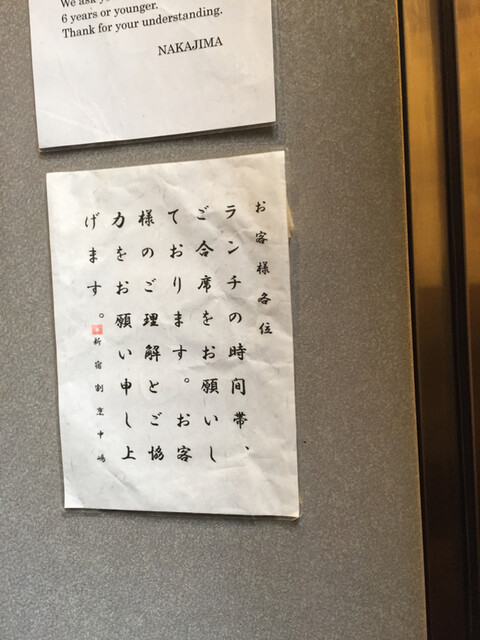 6 years or younger.
Thank for your understanding.
NAKAJIMA
お客様各位
ランチの時間帯、
ご合席をお願いし
ております。お客
様のご理解とご協
力をお願い申し上
げます。
新宿割烹中嶋